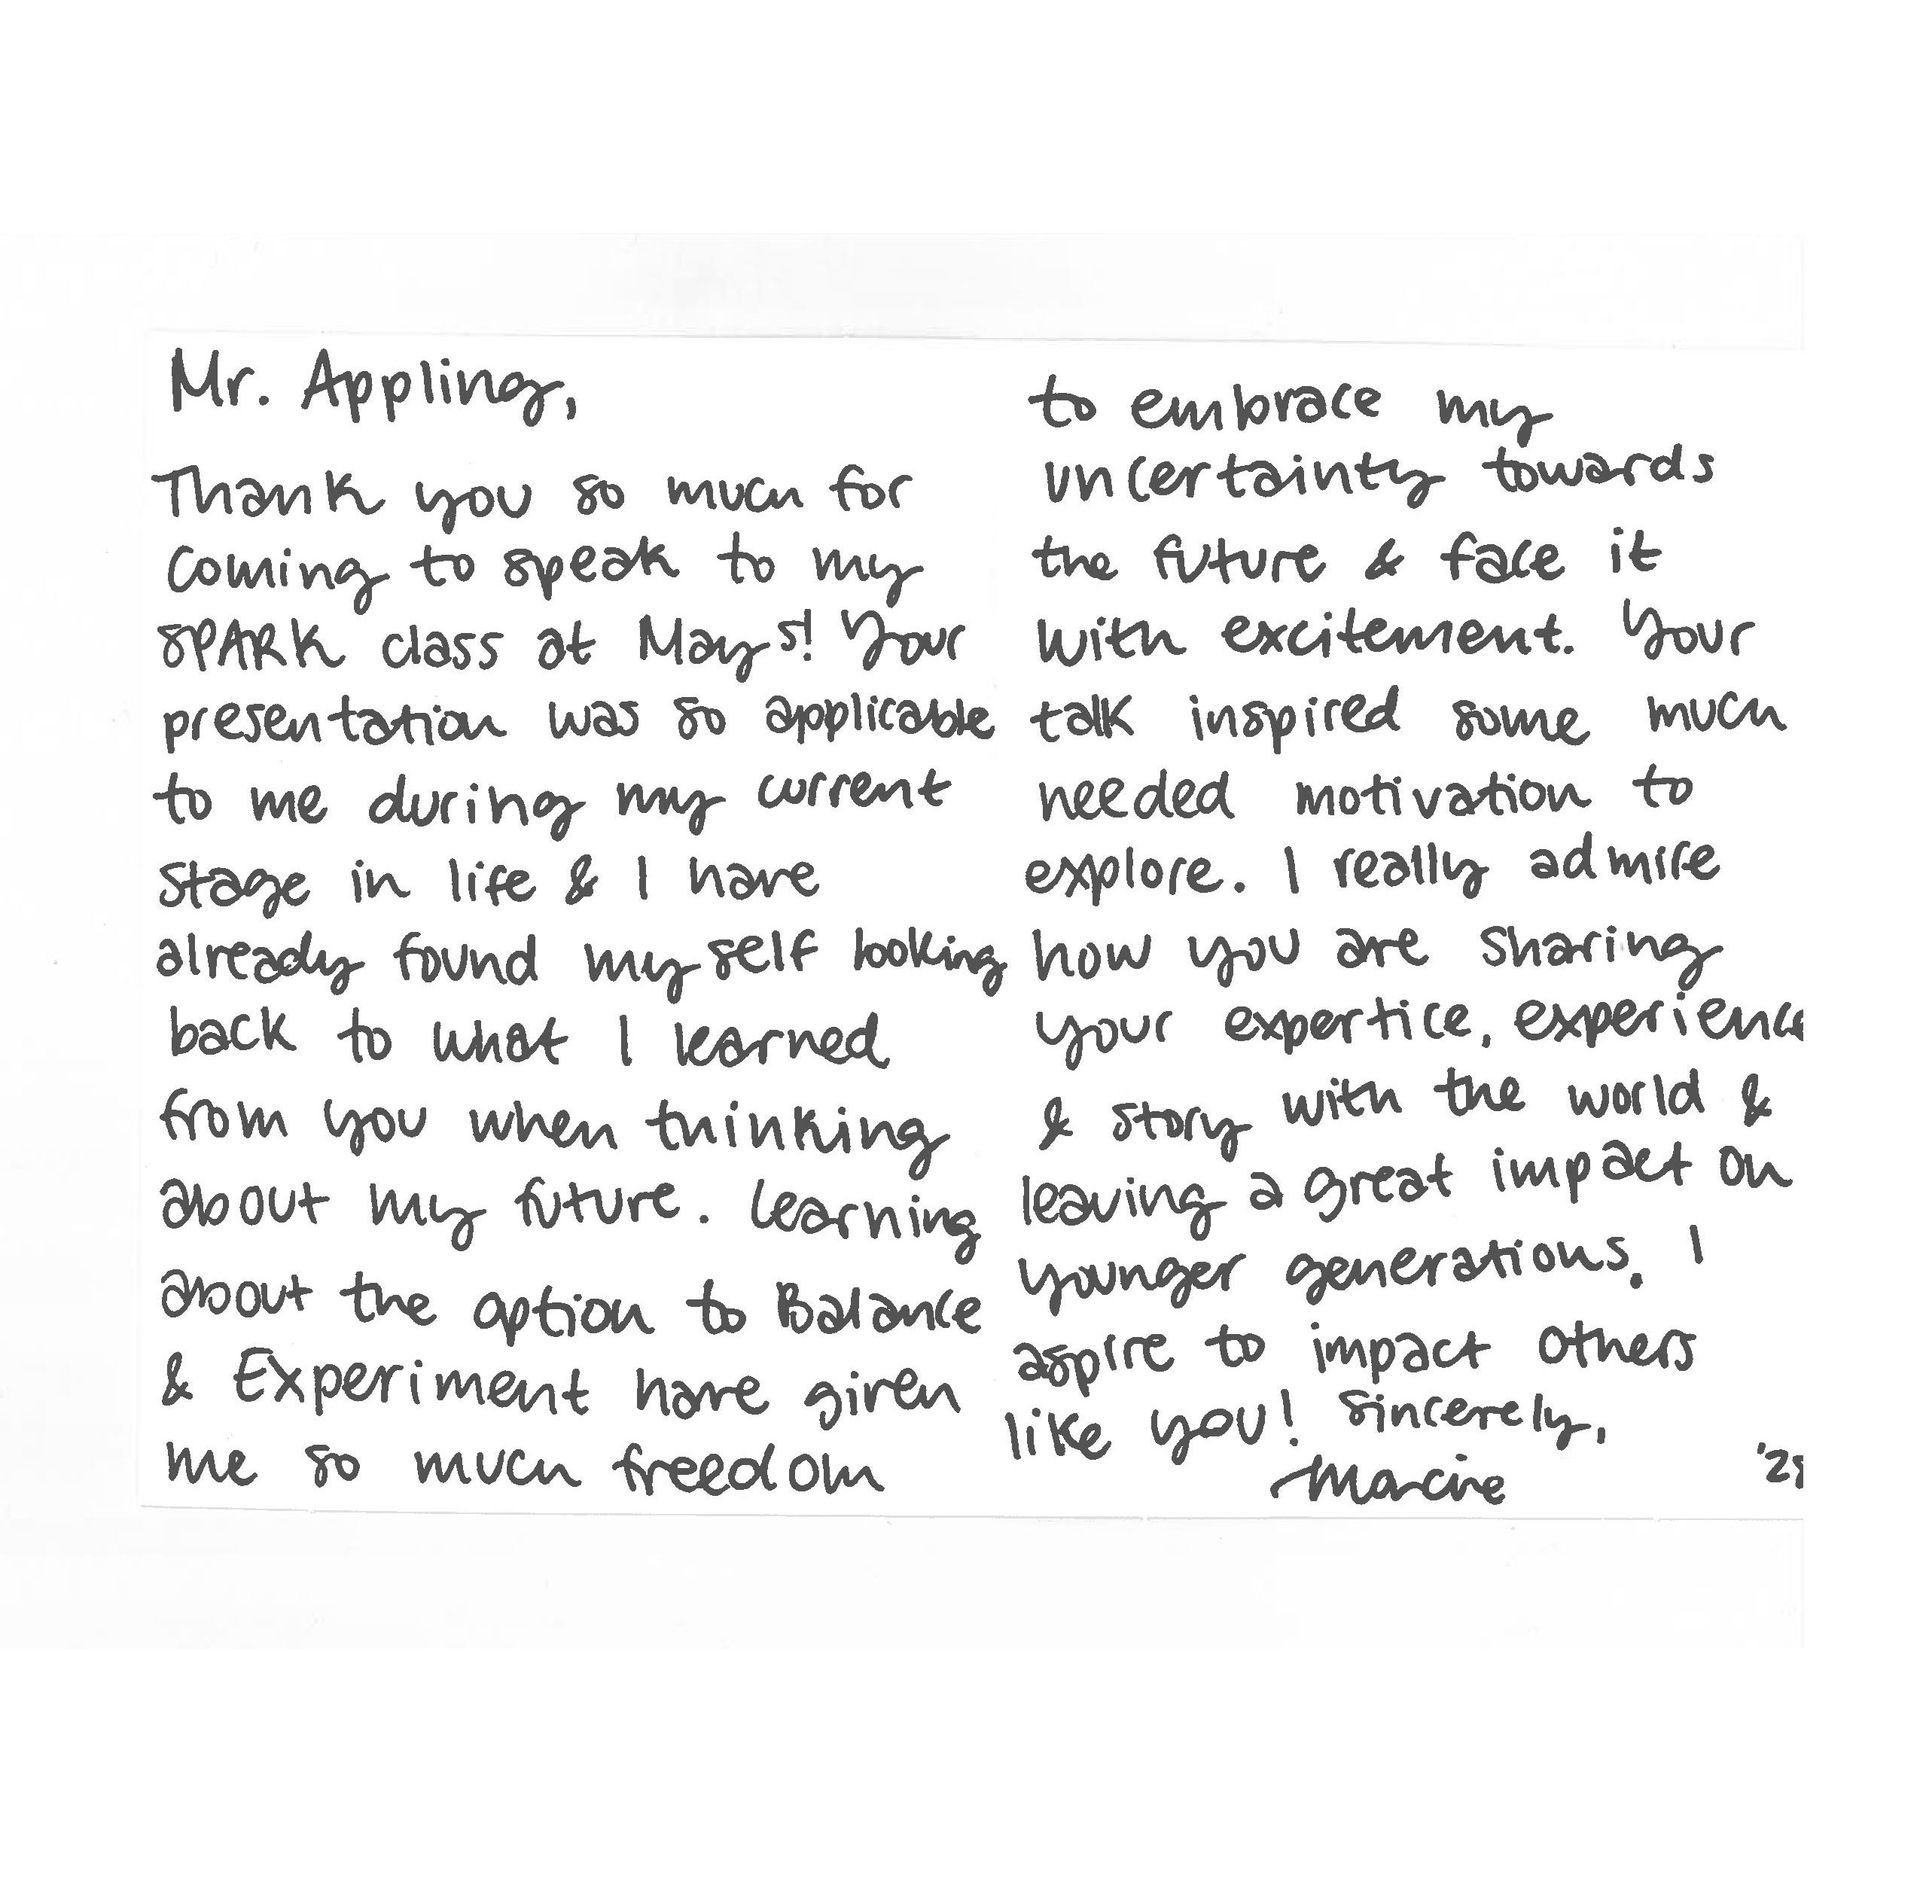 Mr. Appling,
Thank you so much for
coming to speak to my
SPARK class at Mays! Your
presentation was so applicable
to me during my current
stage in life & I have
already found myself looking
back to what I learned
from you when thinking
about my future. Learning
about the option to Balance
& Experiment have given
me so much freedom
to embrace my
uncertainty towards
the future & face it
with excitement. Your
talk inspired some much
needed motivation to
explore. I really admire
how you are sharing
your expertice, experience
& story with the world &
leaving a great impact on
younger generations. I
aspire to impact others
like you! Sincerely,
Marcine